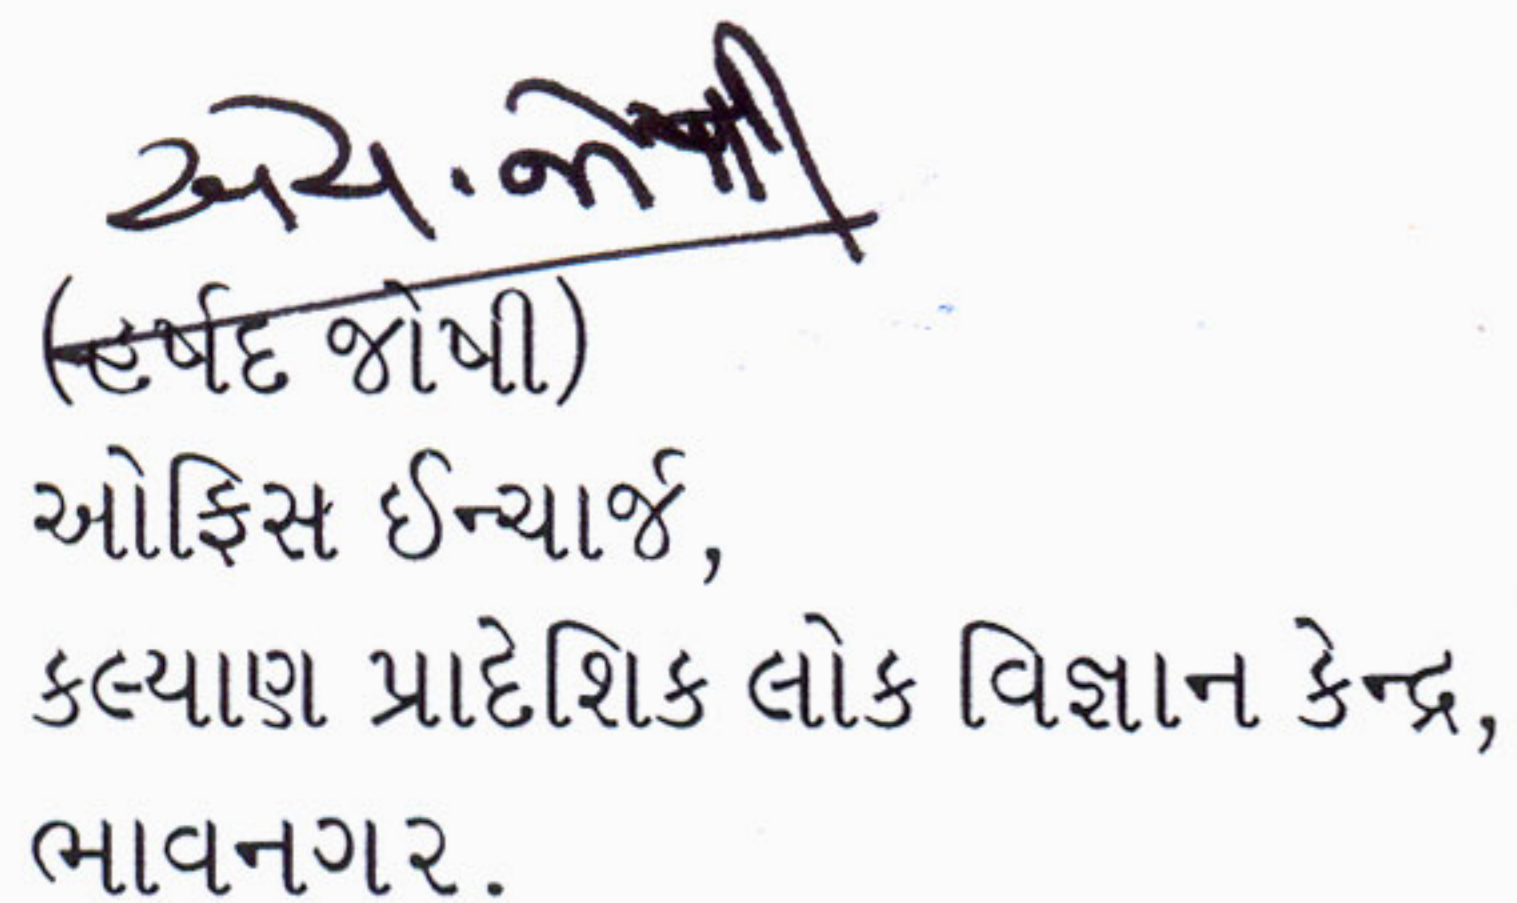 એચ. જોષી
(હર્ષદ જોષી)
ઓફિસ ઈન્ચાર્જ,
કલ્યાણ પ્રાદેશિક લોક વિજ્ઞાન કેન્દ્ર,
ભાવનગર.